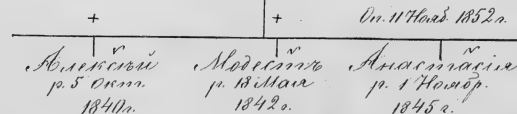 Оп. 11 Нояб. 1852 г.
Алексѣй
р. 5 Окт.
1840 г.
Модестъ
р. 13 Мая
1842 г.
Анастасія
р. 1 Ноябр.
1845 г.